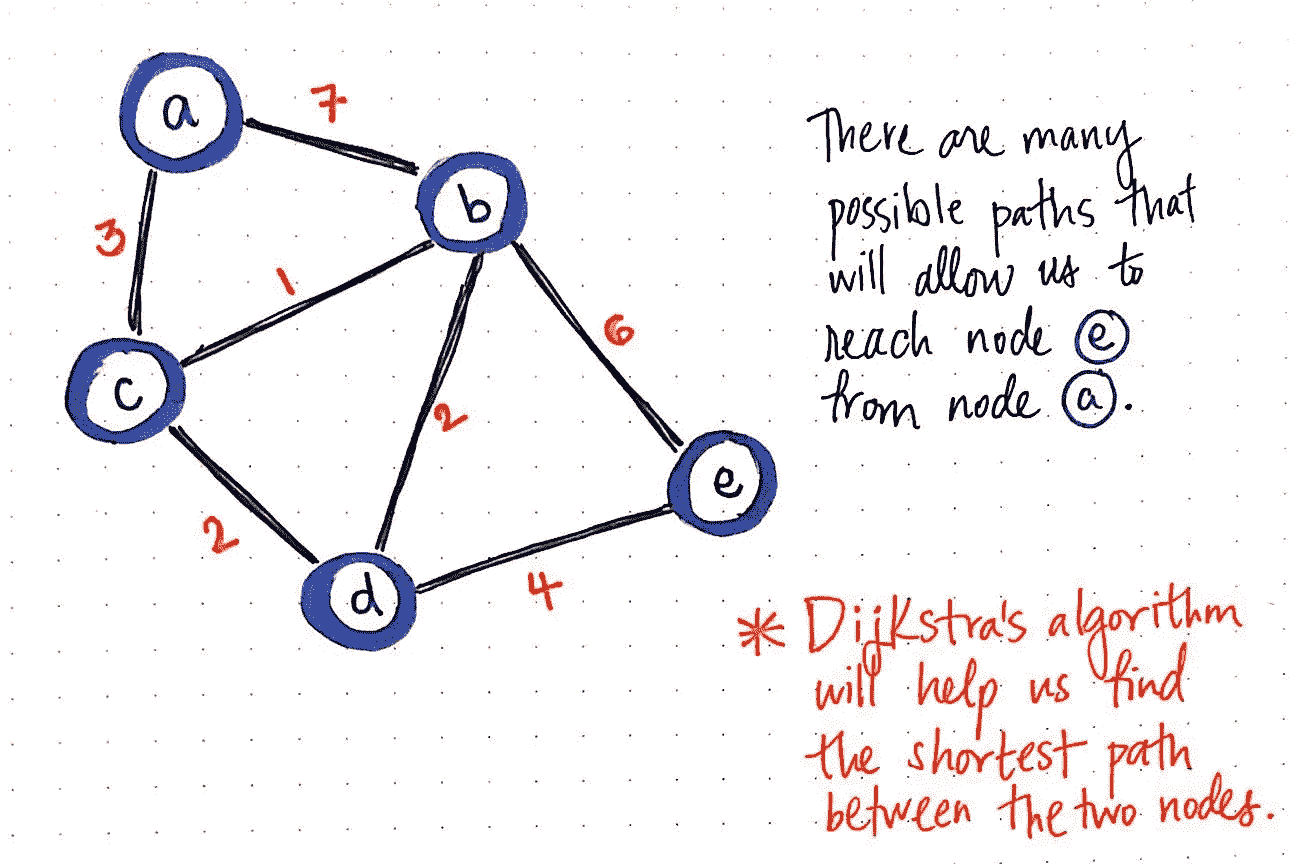 a
7
b
3
1
6
c
2
e
2
d
4
There are many
possible paths that
will allow us to
reach node e
from node a.
* Dijkstra's algorithm
will help us find
the shortest path
between the two nodes.